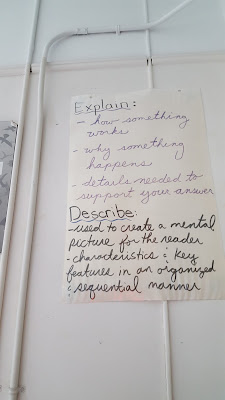 Explain:
- how something
works
- why something
happens
- details needed to
support your answer
Describe:
- used to create a mental
picture for the reader
- characteristics & key
features in an organized
& sequential manner